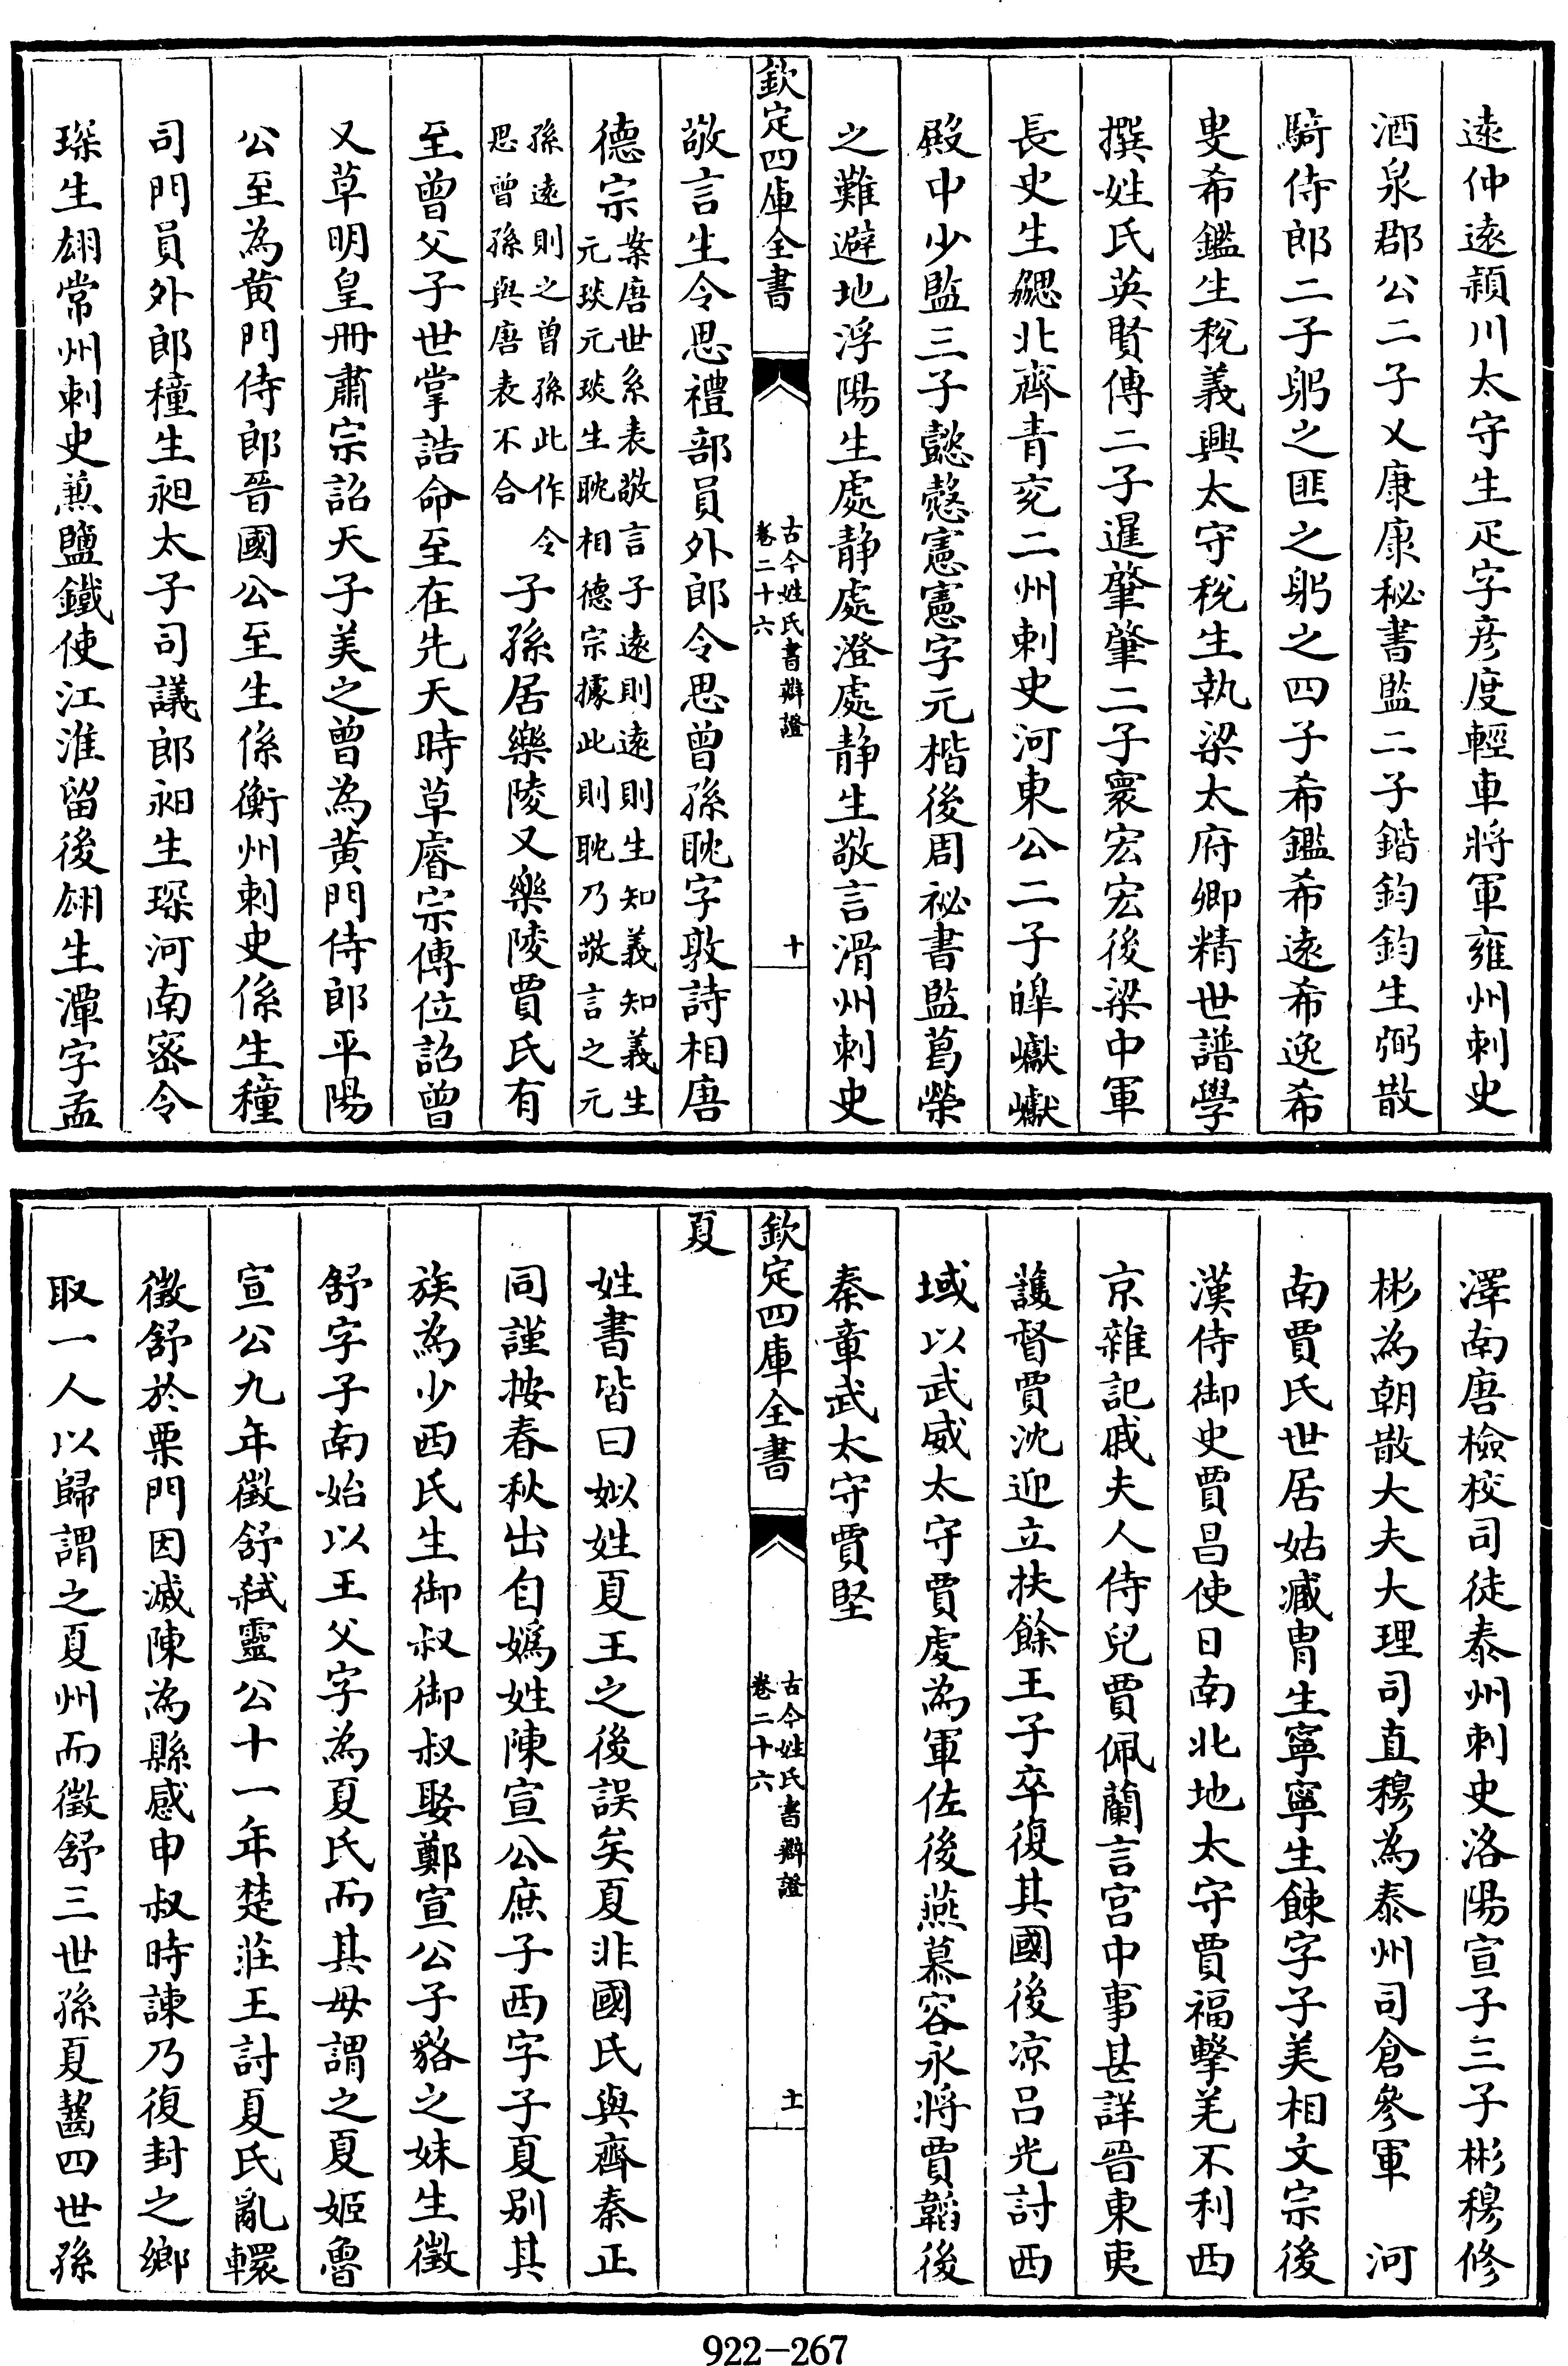 遠仲遠潁川太守生疋字彦度輕車將軍雍州刺史
酒泉郡公二子乂康康秘書監二子鍇鈞鈞生弼散
騎侍郎二子躬之匪之躬之四子希鑑希遠希逸希
叟希鑑生稅義興太守稅生執梁太府卿精世譜學
撰姓氏英賢傳二子暹肇肇二子寰宏宏後梁中軍
長史生勰北齊青兖二州刺史河東公二子皥巘巘
殿中少監三子懿慤憲憲字元楷後周祕書監葛榮
之難避地浮陽生處静處澄處静生敬言滑州刺史
欽定四庫全書
古今姓氏書辯證
卷二十六
十
敬言生令思禮部員外郎令思曾孫耽字敦詩相唐
德宗案唐世系表敬言子遠則遠則生知義知義生
元琰元琰生耽相德宗據此則耽乃敬言之元
孫遠則之曾孫此作令
思曾孫與唐表不合
子孫居樂陵又樂陵賈氏有
至曾父子世掌誥命至在先天時草睿宗傳位詔曾
又草明皇冊肅宗詔天子美之曾為黄門侍郎平陽
公至為黄門侍郎晉國公至生係衡州刺史係生穜
司門員外郎穜生昶太子司議郎昶生琛河南密令
琛生翃常州刺史兼鹽鐵使江淮留後翃生潭字孟
澤南唐檢校司徒泰州刺史洛陽宣子三子彬穆修
彬為朝散大夫大理司直穆為泰州司倉參軍 河
南賈氏世居姑臧胄生寧寧生餗字子美相文宗後
漢侍御史賈昌使日南北地太守賈福擊羌不利西
京雜記戚夫人侍兒賈佩蘭言宫中事甚詳晉東夷
護督賈沈迎立扶餘王子卒復其國後凉吕光討西
域以武威太守賈虔為軍佐後燕慕容永將賈韜後
秦章武太守賈堅
欽定四庫全書
古今姓氏書辯證
卷二十六
十一
夏
姓書皆曰姒姓夏王之後誤矣夏非國氏與齊秦正
同謹按春秋出自嬀姓陳宣公庶子西字子夏别其
族為少西氏生御叔御叔娶鄭宣公子貉之妹生徵
舒字子南始以王父字為夏氏而其毋謂之夏姬魯
宣公九年徵舒弒靈公十一年楚莊王討夏氏亂轘
徵舒於栗門因滅陳為縣感申叔時諫乃復封之鄉
取一人以歸謂之夏州而徵舒三世孫夏齧四世孫
922-267